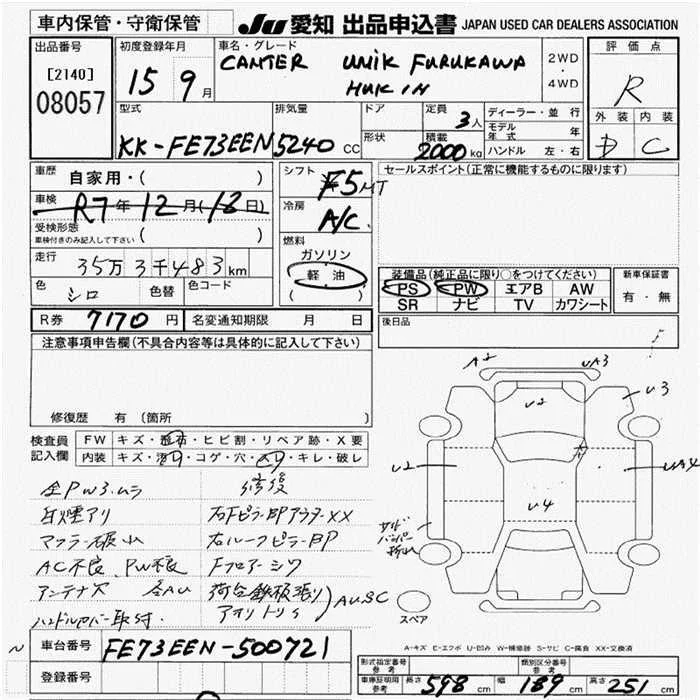 車内保管・守衛保管
JU 愛知 出品申込書 JAPAN USED CAR DEALERS ASSOCIATION
出品番号
[2140]
08057
初度登録年月
15 9月
車名・グレード
CANTER UNIK FURUKAWA
HUKIN
2WD
・
4WD
評価点
R
外装 内装
D C
型式
KK-FE73EEN
排気量
5240 cc
ドア
形状
定員
3人
積載
2000kg
ディーラー・並行
モデル年式 年
ハンドル 左・右
車歴
自家用・( )
車検
R7年12月(18日)
受検形態
車検付きのみ記入して下さい ( )
走行
35万3千483km
色 シロ 色替 色コード
シフト
F5MT
冷房
A/C
燃料
ガソリン
軽油
( )
セールスポイント(正常に機能するものに限ります)
装備品(純正品に限り○をつけてください)
PS PW エアB AW
SR ナビ TV カワシート
新車保証書
有・無
R券 7170円 名変通知期限 月 日
後日品
注意事項申告欄(不具合内容等は具体的に記入して下さい)
修復歴 有 (箇所
検査員
記入欄
FW キズ・飛石・ヒビ割・リペア跡・X要
内装 キズ・汚れ・コゲ・穴・スリ・キレ・破レ
全PW3.ムラ 修復
白煙アリ 右FピラーBPアウターXX
マフラー破れ 右ルーフピラーBP
AC不良、PW不良 Fフロアーシワ
アンテナ欠 各AU 荷台鉄板張り
ハンドルカバー取付. アオリトリS
AUSC
A2 UA3
U3
U2
U2
UA4
U4
サイド
バンパー
折れ
スペア
A-キズ E-エクボ U-凹み W-補修跡 S-サビ C-腐食 XX-交換済
車台番号 FE73EEN-500721
登録番号
型式指定番号
参考
類別区分番号
参考
車庫証明用
参考
長さ 598cm 幅 189cm 高さ 251cm